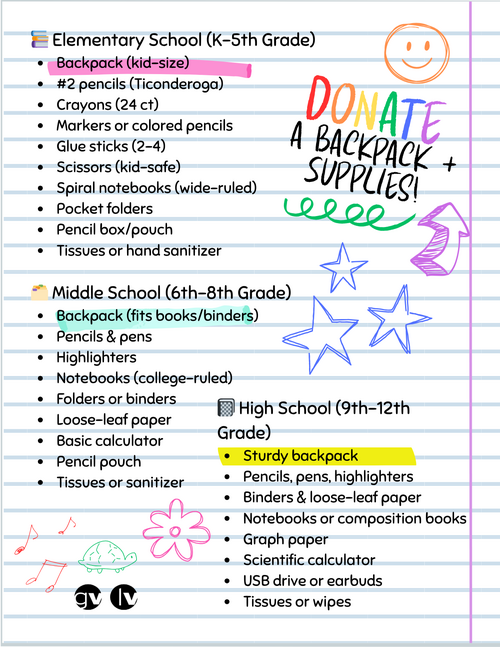 Elementary School (K-5th Grade)
• Backpack (kid-size)
• #2 pencils (Ticonderoga)
• Crayons (24 ct)
• Markers or colored pencils
• Glue sticks (2-4)
• Scissors (kid-safe)
• Spiral notebooks (wide-ruled)
• Pocket folders
• Pencil box/pouch
• Tissues or hand sanitizer
DONATE
A BACKPACK +
SUPPLIES!
Middle School (6th-8th Grade)
• Backpack (fits books/binders)
• Pencils & pens
• Highlighters
• Notebooks (college-ruled)
• Folders or binders
• Loose-leaf paper
• Basic calculator
• Pencil pouch
• Tissues or sanitizer
High School (9th-12th
Grade)
• Sturdy backpack
• Pencils, pens, highlighters
• Binders & loose-leaf paper
• Notebooks or composition books
• Graph paper
• Scientific calculator
• USB drive or earbuds
• Tissues or wipes
gv lv